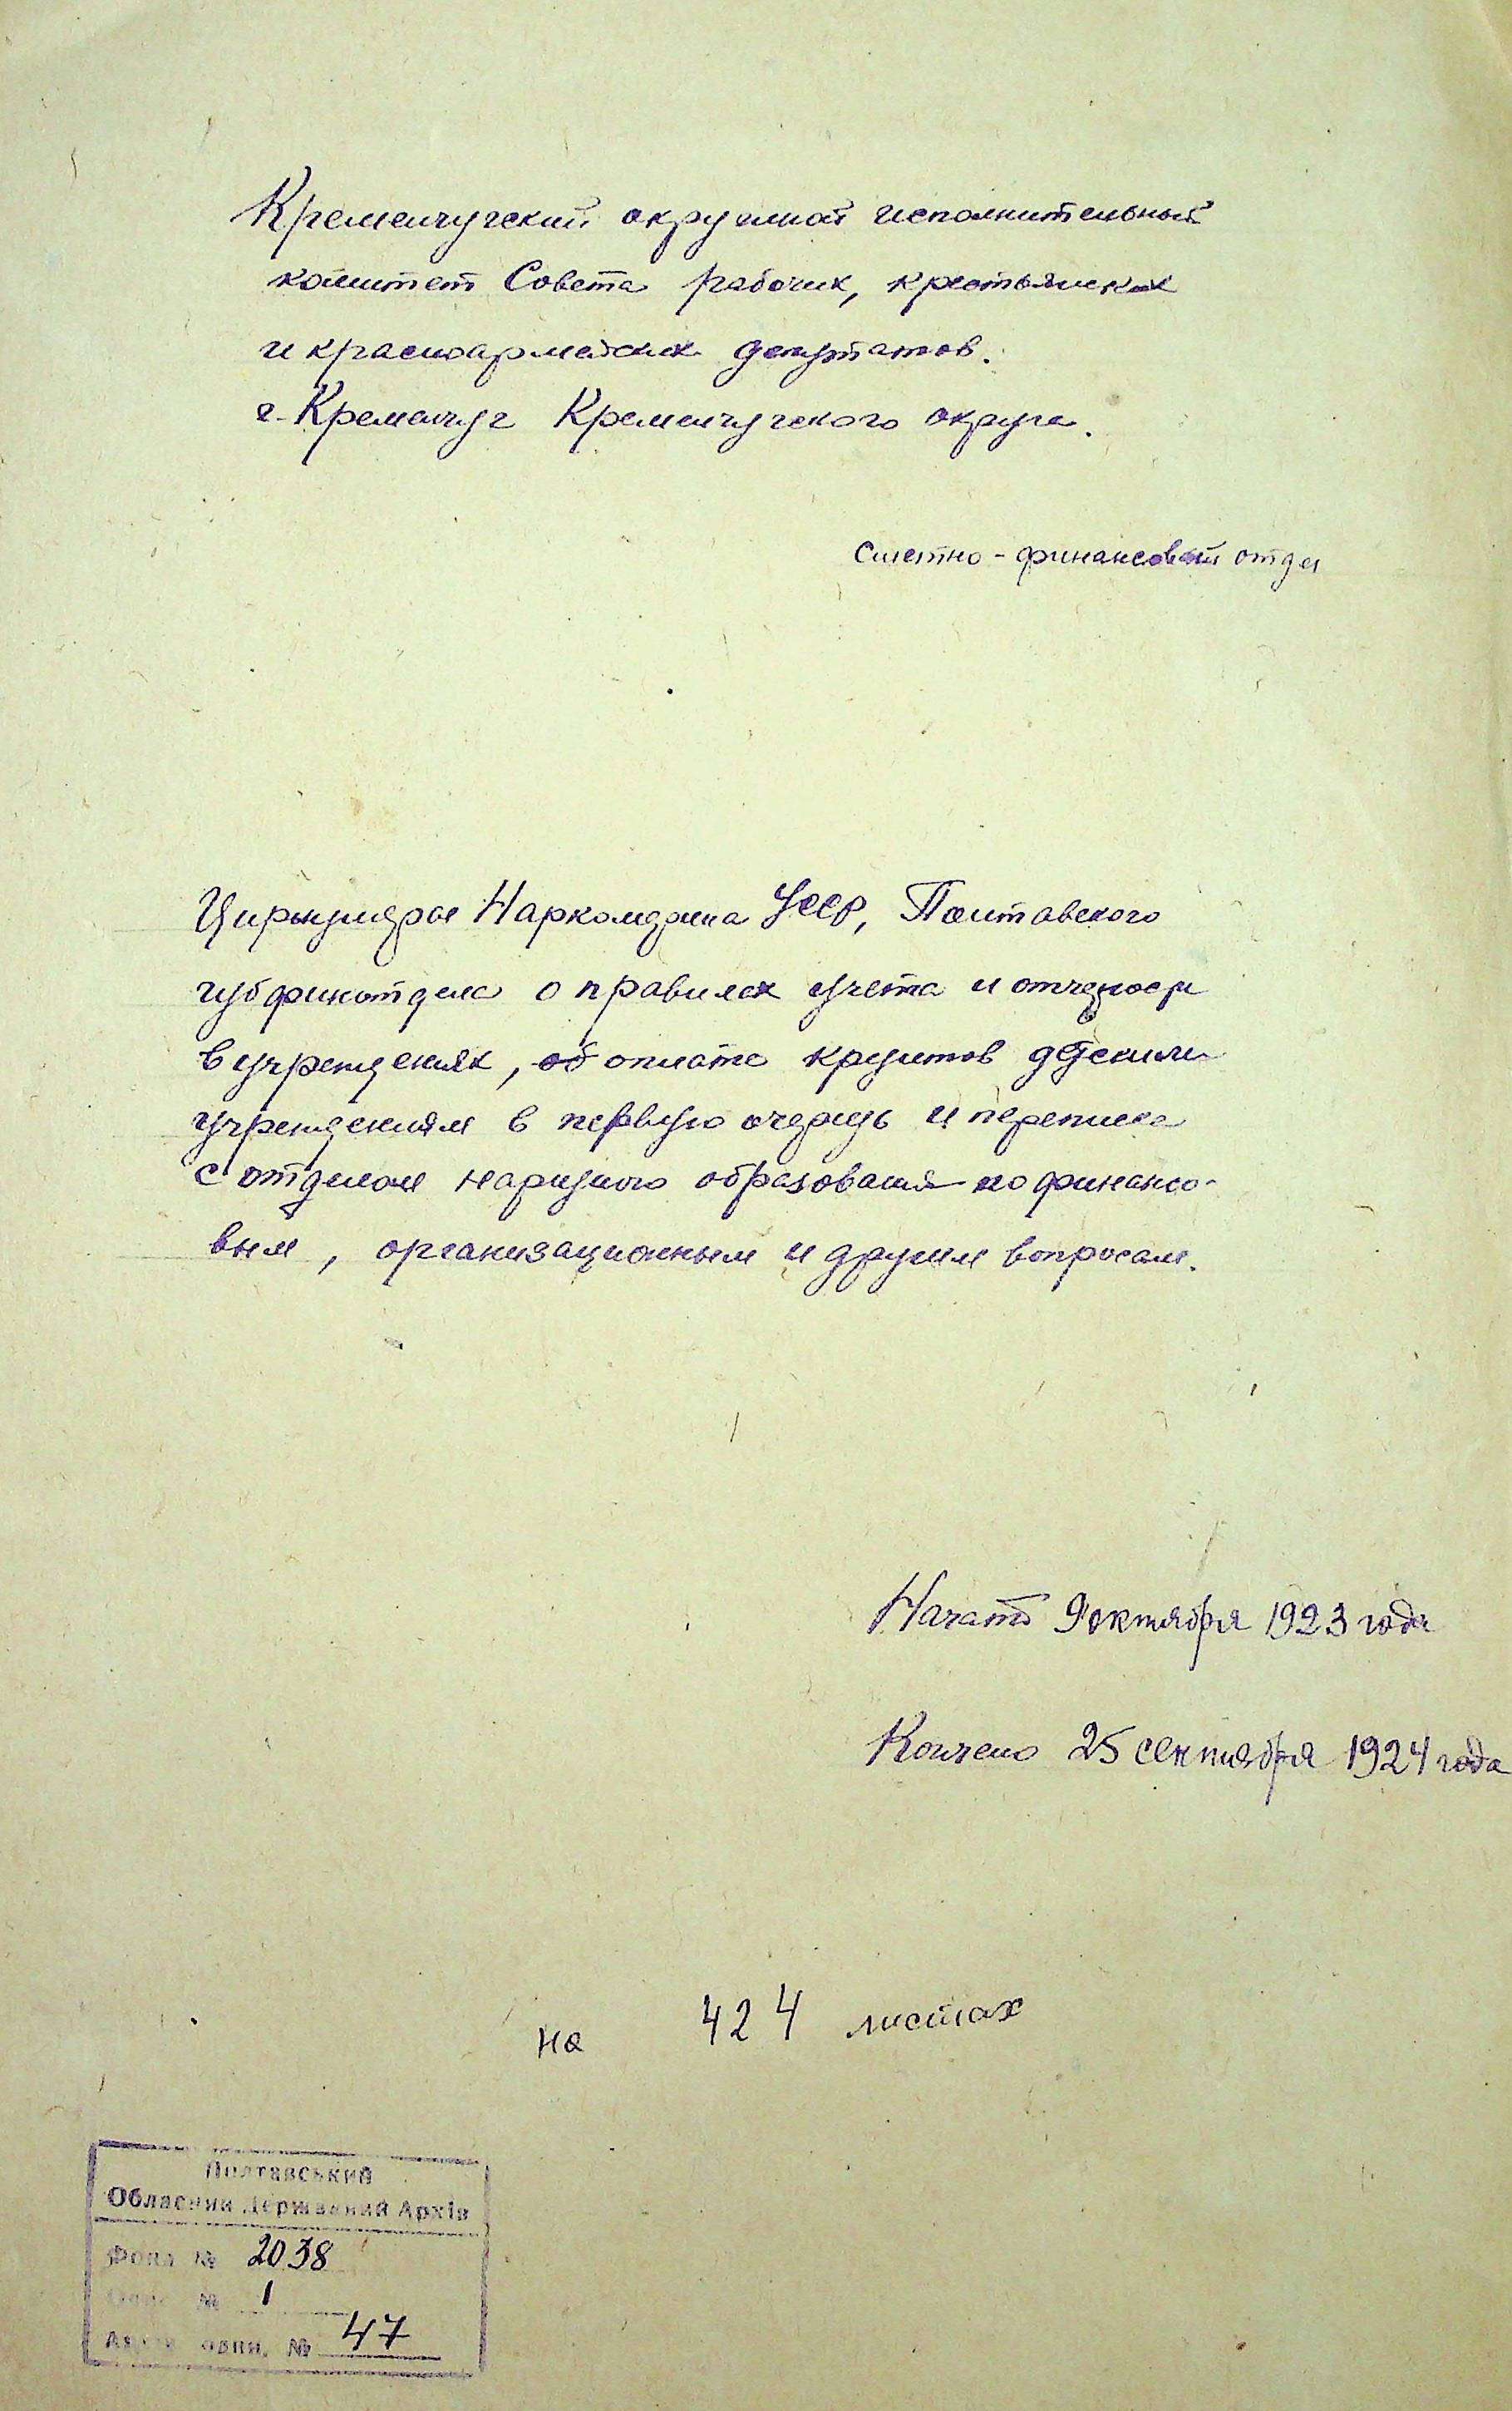 Кременчугский окружной исполнительный
комитет Совета рабочих, крестьянских
и красноармейских депутатов.
г. Кременчуг Кременчугского округа.
Сметно-финансовый отдел
Циркуляры Наркомфина УССР, Полтавского
губфинотдела о правилах учета и отчетности
в учреждениях, об оплате кредитов детским
учреждениям в первую очередь и переписка
с отделом народного образования по финансо-
вым, организационным и другим вопросам.
Начато 9 октября 1923 года
Кончено 25 сентября 1924 года
на 424 листах
Полтавський
Обласний Державний Архів
Фонд № 2038
Опис № 1
№ 47